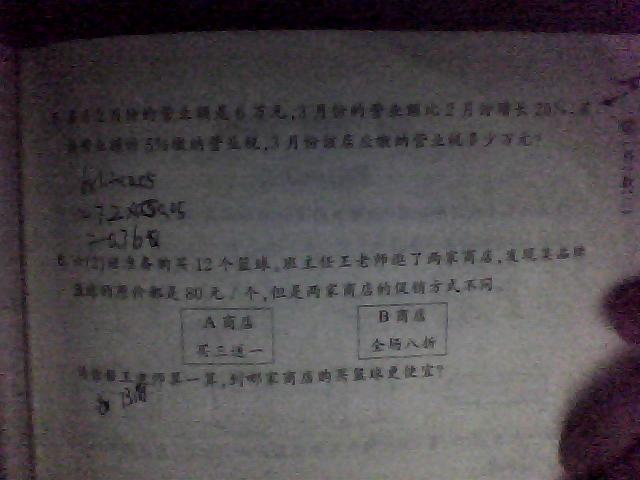 2月份的营业额是6万元,3月份的营业额比2月份增长20%.
5%缴纳营业税,3月份该店应缴纳营业税多少万元?
=7.2×
=0.36
6.六(2)班准备购买12个篮球,班主任王老师逛了两家商店,发现某品牌
篮球的原价都是80元/个,但是两家商店的促销方式不同
A商店
买三送一
B商店
全场八折
请你帮王老师算一算,到哪家商店购买篮球更便宜?